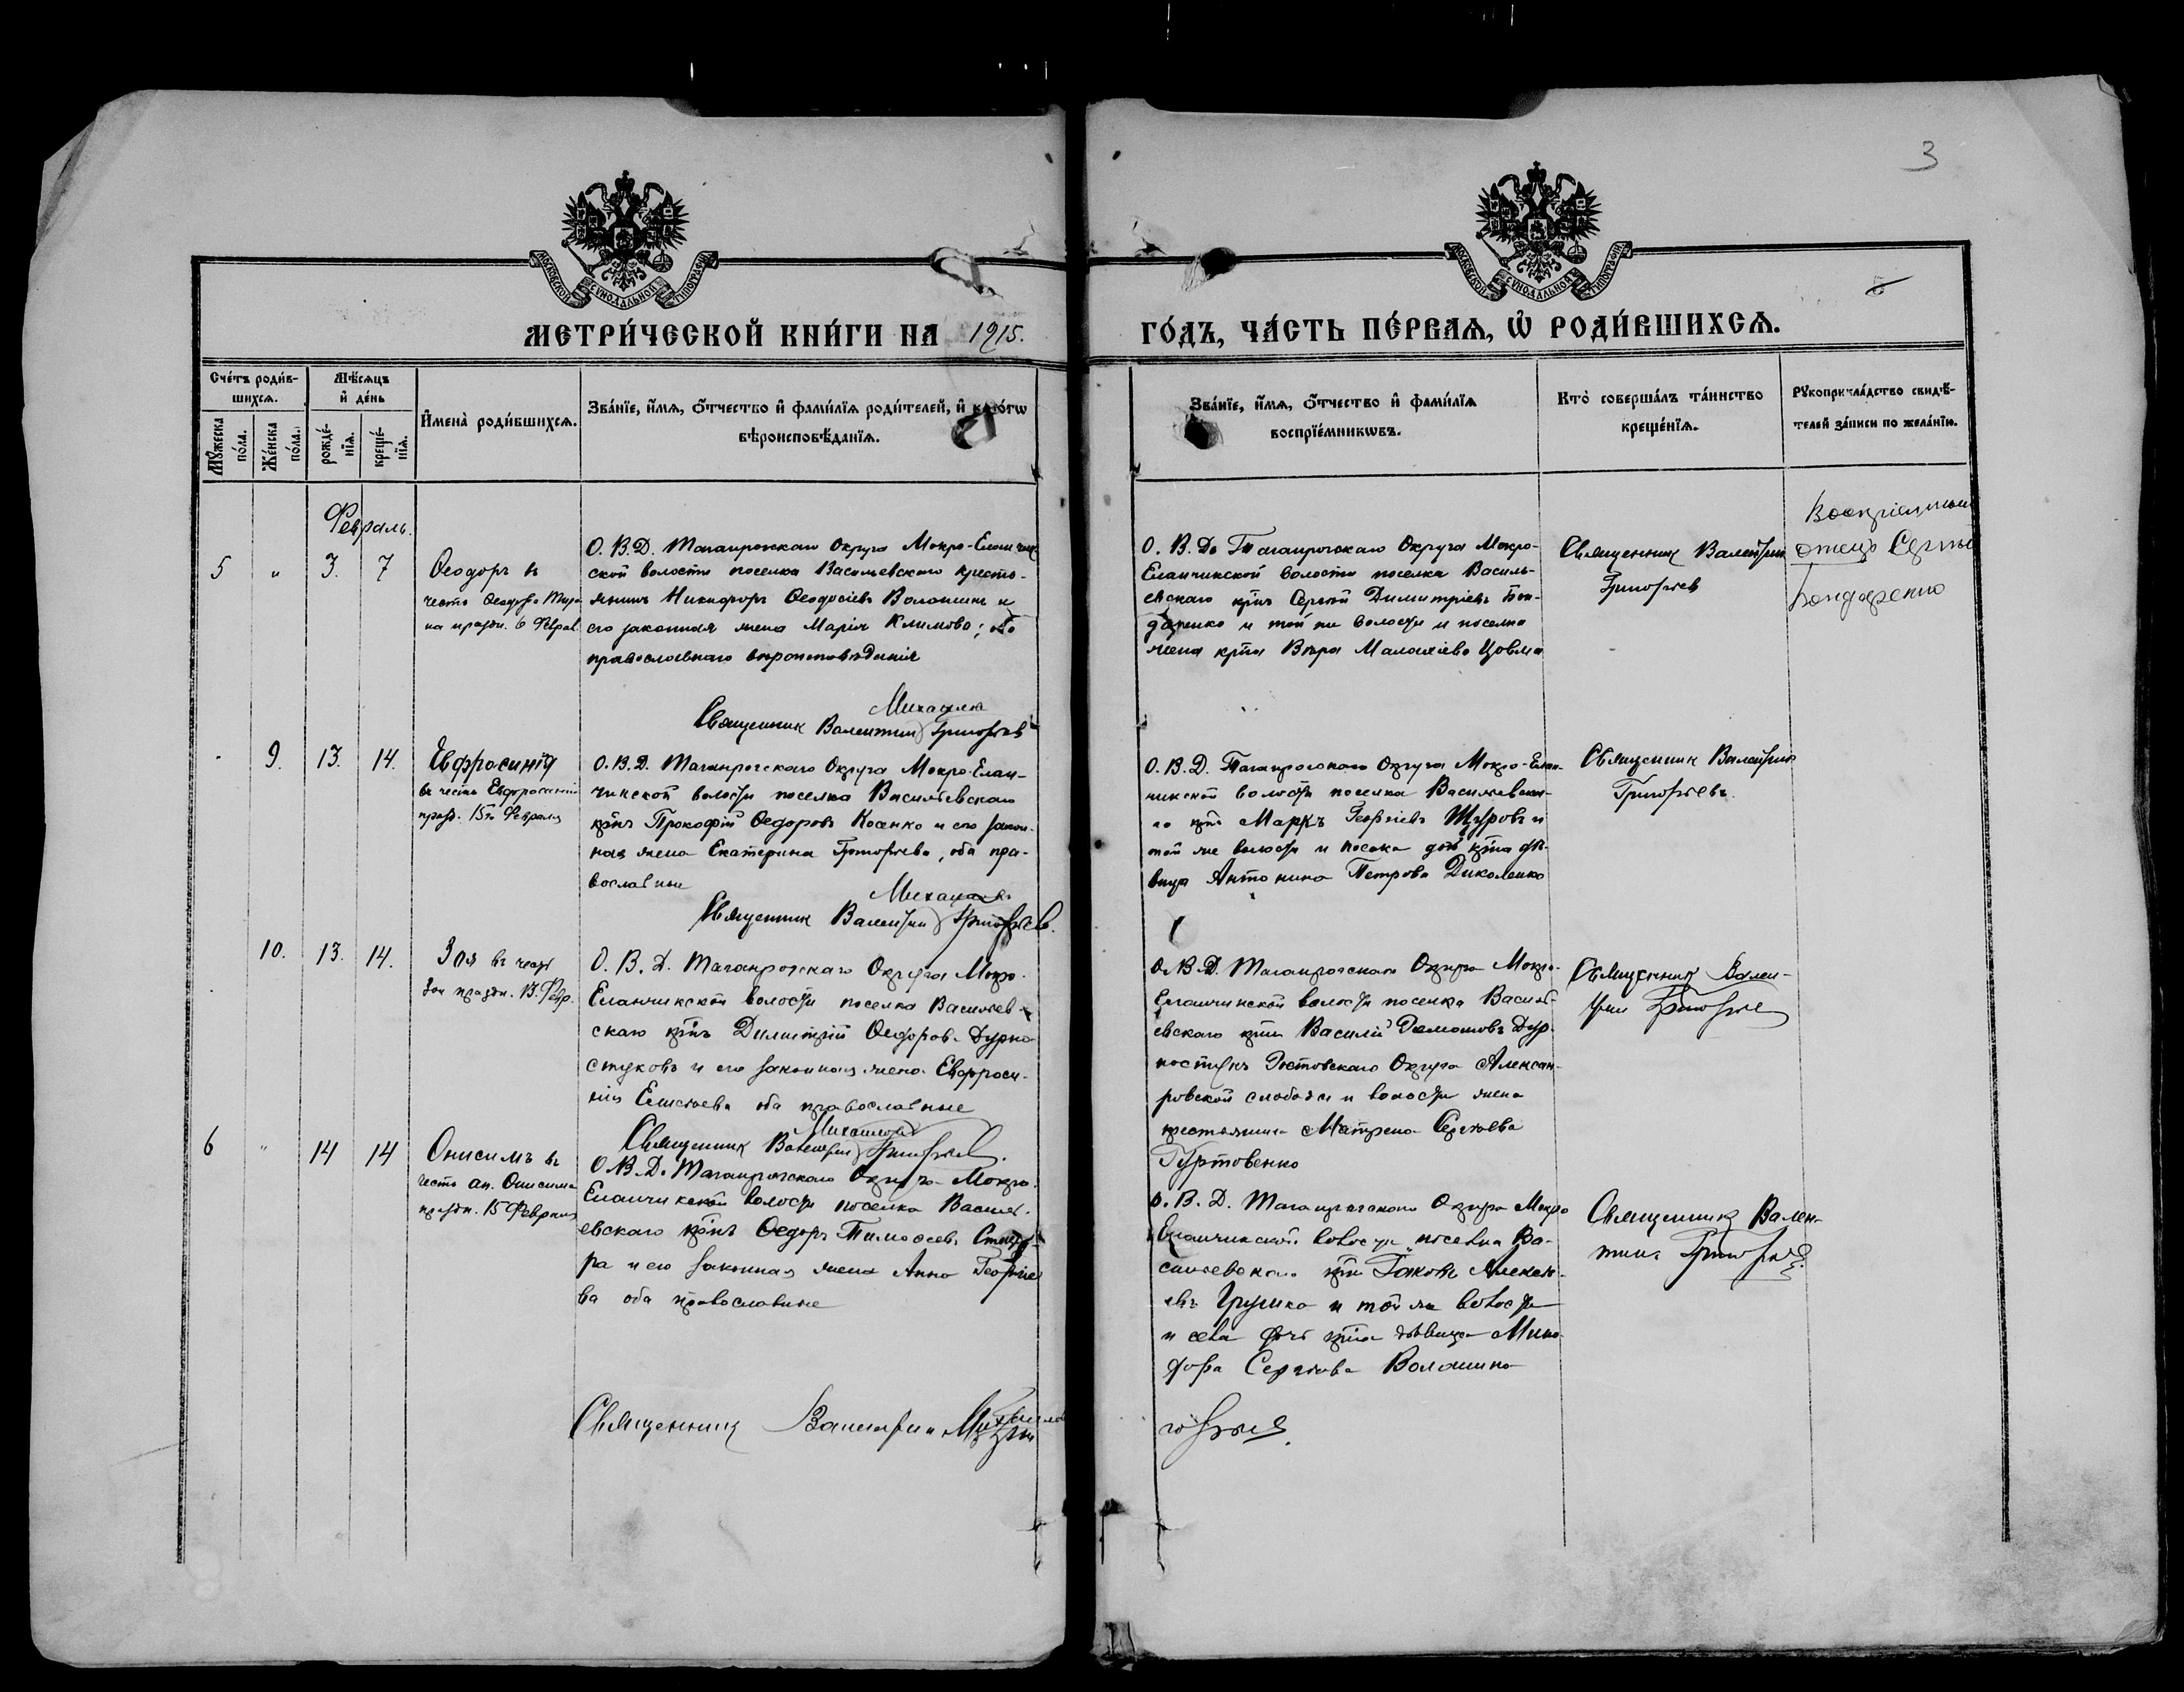 3
МОСКОВСКОЙ СѴНОДАЛЬНОЙ ТИПОГРАФІИ
МОСКОВСКОЙ СѴНОДАЛЬНОЙ ТИПОГРАФІИ
МЕТРИ́ЧЕСКОЙ КНИ́ГИ НА 1915. ГО́ДЪ, ЧА́СТЬ ПЕ́РВАѦ, Ѿ РОДИ́ВШИХСѦ.
Сче́тъ роди́в-
шихсѧ.
Мѣ́сѧцъ
и҆ де́нь
Мꙋ́жеска
по́ла.
Же́нска
по́ла.
рожде́-
нїѧ.
креще́-
нїѧ.
И҆мена̀ роди́вшихсѧ.
Зва́нїе, и҆́мѧ, ѻ҆́тчество и҆ фами́лїѧ роди́телей, и҆ како́гѡ
вѣроисповѣ́данїѧ.
Зва́нїе, и҆́мѧ, ѻ҆́тчество и҆ фами́лїѧ
воспрїе́мникѡвъ.
Кто̀ соверша́лъ та́инство
креще́нїѧ.
Рꙋкоприкла́дство свидѣ́-
телей за́писи по жела́нїю.
Февраль.
5 " 3. 7
Ѳеодоръ въ
честь Ѳеодора
на праздн. 6 Феврал.
О. В. Д. Таганрогскаго Округа Мокро-Еланчик
ской волости поселка Васильевскаго кресть-
янинъ Никифоръ Ѳеодосіевъ Волошинъ и
его законная жена Марія Климова; оба
православнаго вѣроисповѣданія
Священник Валентин Михайлов Григорьев
О. В. Д. Таганрогскаго Округа Мокро-
Еланчикской волости поселка Василь-
евскаго крнъ Сергѣй Димитріевъ Бон-
даренко и той же волости и поселка
жена крна Вѣра Малахіева
Священник Валентин
Григорьев
отецъ Сергѣй
Бондаренко
9. 13. 14.
Евфросинія
въ честь Евфросиніи
празд. 15го Февраля
О. В. Д. Таганрогскаго Округа Мокро-Елан-
чикской волости поселка Васильевскаго
крнъ Прокофій Ѳедоровъ Косенко и его закон-
ная жена Екатерина Григорьева, оба пра-
вославные
Священник Валентин Михайлов Григорьев.
О. В. Д. Таганрогскаго Округа Мокро-Елан-
чикской волости поселка Васильевска-
го крнъ Маркъ Георгіевъ Щуровъ и
той же волости и поселка дочь крна дѣ-
вица Антонина Петрова Диколенко
Священник Валентин
Григорьевъ.
10. 13. 14.
Зоя въ честь
Зои праздн. 13. Февр.
О. В. Д. Таганрогскаго Округа Мокро-
Еланчикской волости поселка Васильев-
скаго крнъ Димитрій Ѳедоровъ Дурно-
стуковъ и его законная жена Евфроси-
нія Елисеева оба православные
Священник Валентин Михайлов Григорьев.
О. В. Д. Таганрогскаго Округа Мокро-
Еланчикской волости поселка Василь-
евскаго крнъ Василій
Ростовскаго Округа Алексан-
ровской слободы и волости жена
крестьянина Матрена Сергѣева
Гуртовенко
Священник Вален-
тин Григорьев
6 " 14 14
Онисимъ въ
честь ап. Онисима
праздн. 15 Февраля
О. В. Д. Таганрогскаго Округа Мокро-
Еланчикской волости поселка Василь-
евскаго крнъ Ѳедоръ Тимоѳеевъ
и его законная жена Анна Георгіе
ва оба православные
О. В. Д. Таганрогскаго Округа Мокро
Еланчикской волости поселка Ва-
сильевскаго крнъ Іаковъ Алексѣ-
евъ Грушко и той же волости
и села дочь крна дѣвица Мино-
дора Сергѣева Волошина
Священник Вален-
тин Григорьев.
Священник Валентин Михайлов Григорьев.